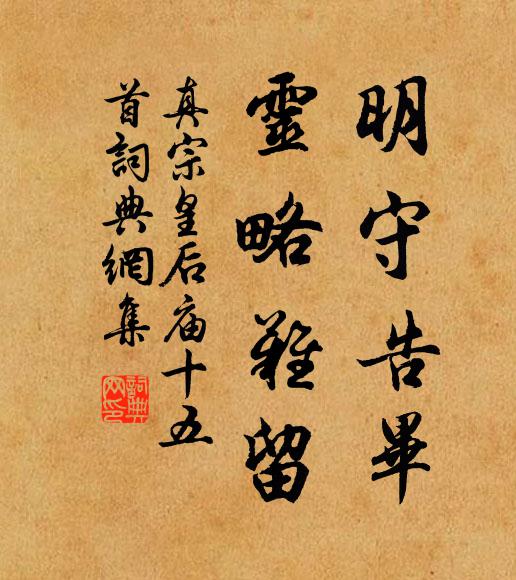 明守告畢
靈略難留
真宗皇后庙十五
首詞典網集
詞典
网印